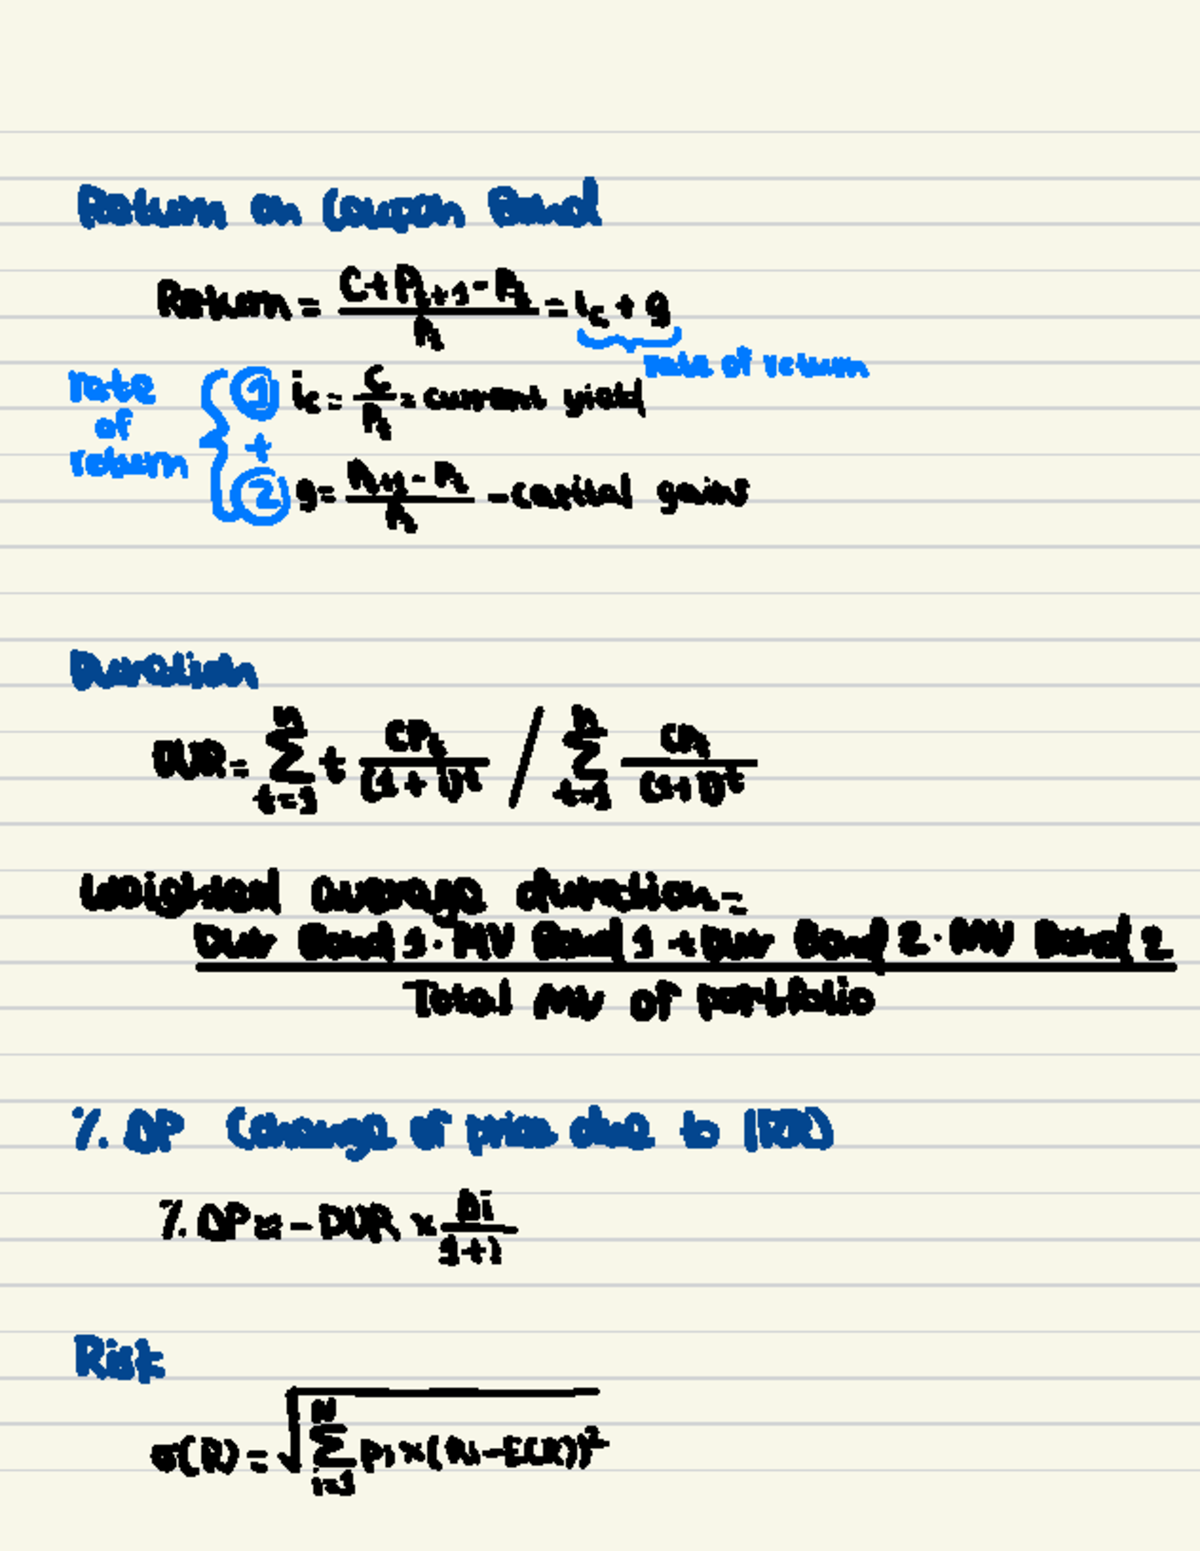 Return on Coupon Bond
Return = C + P_{t+1} - P_t / P_t = i_c + g
rate of return
rate of return { ① i_c = C / P_t = current yield
+
② g = P_{t+1} - P_t / P_t - capital gains
Duration
DUR = Σ_{t=1}^{n} t CP_t / (1 + i)^t / Σ_{t=1}^{n} CP_t / (1 + i)^t
Weighted average duration =
Dur Bond 1 · MV Bond 1 + Dur Bond 2 · MV Bond 2
Total MV of portfolio
% ΔP (change of price due to IRR)
% ΔP ≈ - DUR × Δi / 1 + i
Risk
σ(R) = √ Σ_{i=1}^{N} p_i × (R_i - E(R))²